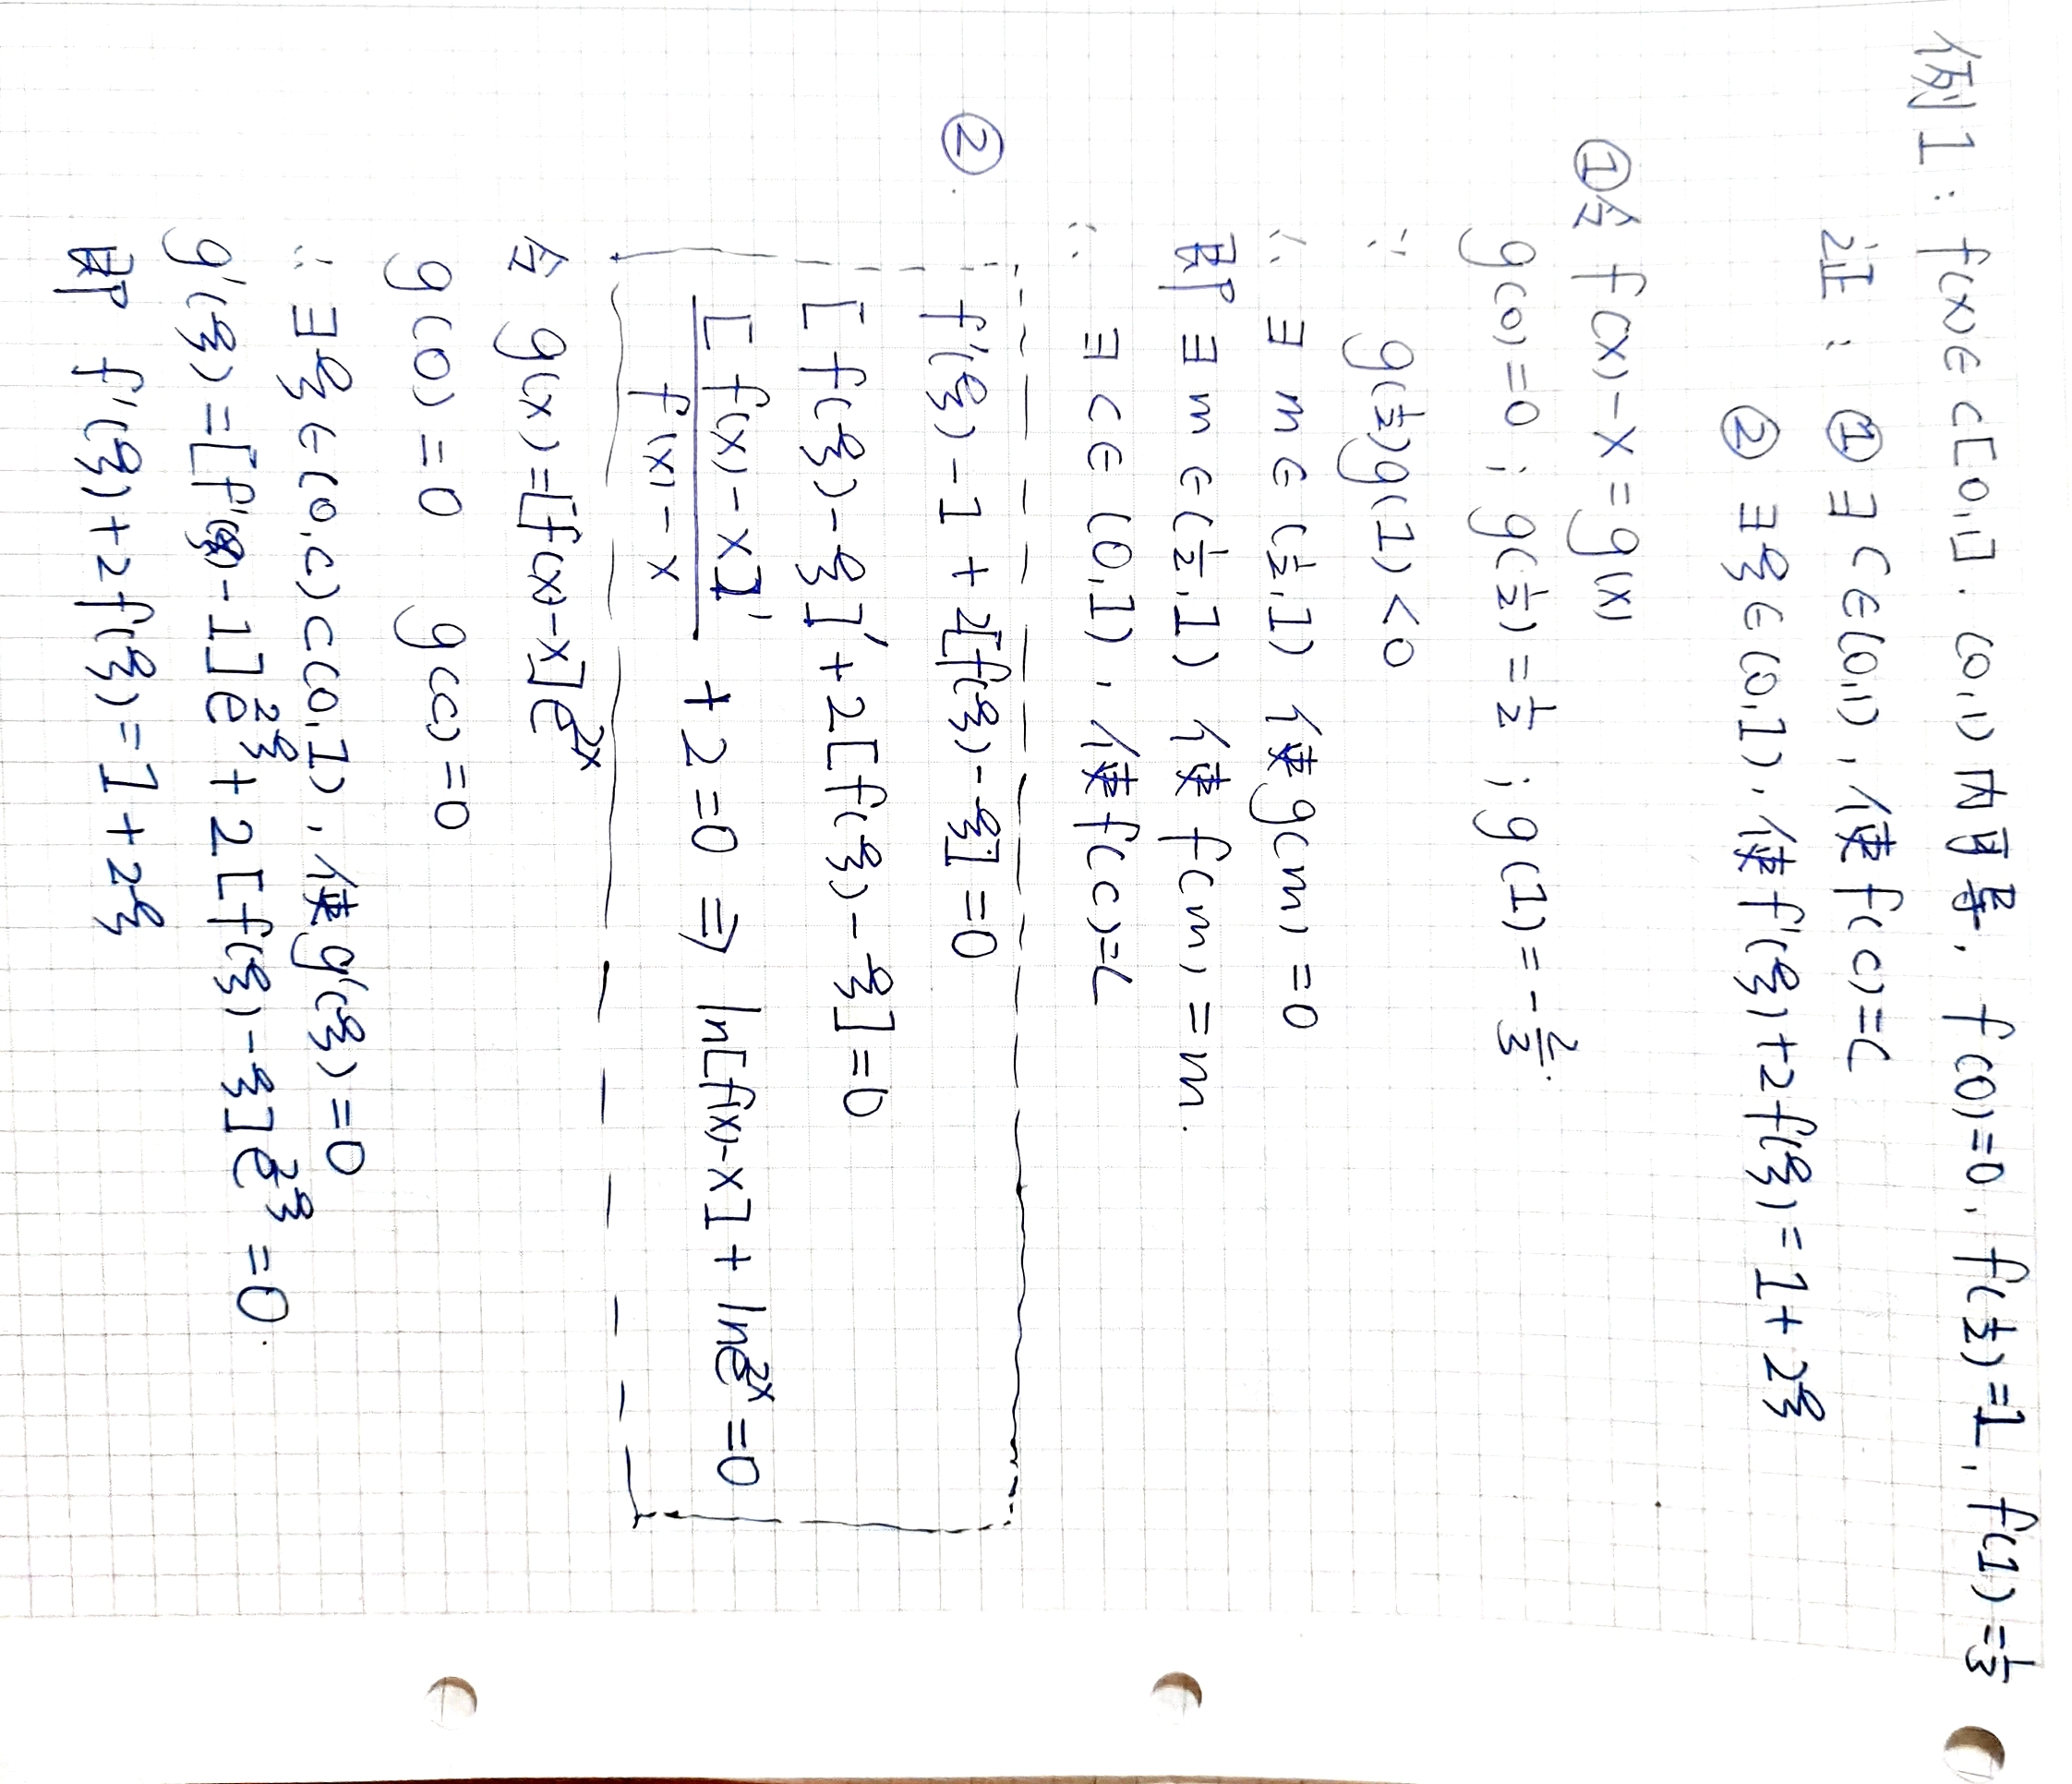 例1: f(x)∈C[0,1]. (0,1)内可导, f(0)=0, f(½)=1, f(1)=⅓
证: ① ∃ C∈(0,1), 使f(c)=C
② ∃ξ∈(0,1), 使f'(ξ)+2f(ξ)=1+2ξ
①令 f(x)-x=g(x)
g(0)=0; g(½)=½; g(1)=-⅔.
∵ g(½)g(1)<0
∴ ∃ m∈(½,1) 使g(m)=0
即 ∃ m∈(½,1) 使 f(m)=m.
∴ ∃ C∈(0,1), 使f(c)=C
②. f'(ξ)-1+2[f(ξ)-ξ]=0
[f(ξ)-ξ]'+2[f(ξ)-ξ]=0
[f(x)-x]'/(f(x)-x) +2=0 ⇒ ln[f(x)-x]+lne^{2x}=0
令 g(x)=[f(x)-x]e^{2x}
g(0)=0 g(c)=0
∴ ∃ξ∈(0,c)⊂(0,1), 使g'(ξ)=0
g'(ξ)=[f'(ξ)-1]e^{2ξ}+2[f(ξ)-ξ]e^{2ξ}=0.
即 f'(ξ)+2f(ξ)=1+2ξ